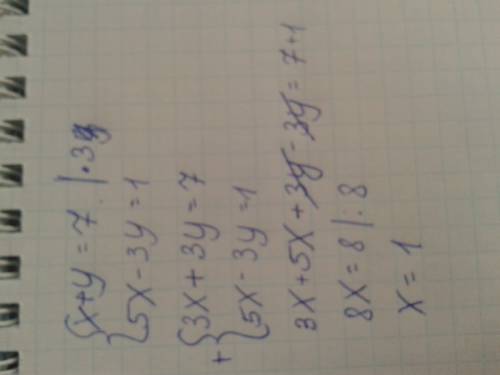 {x+y=7 |·3
{5x-3y=1
+{3x+3y=7
{5x-3y=1
3x+5x+3y-3y=7+1
8x=8 |:8
x=1